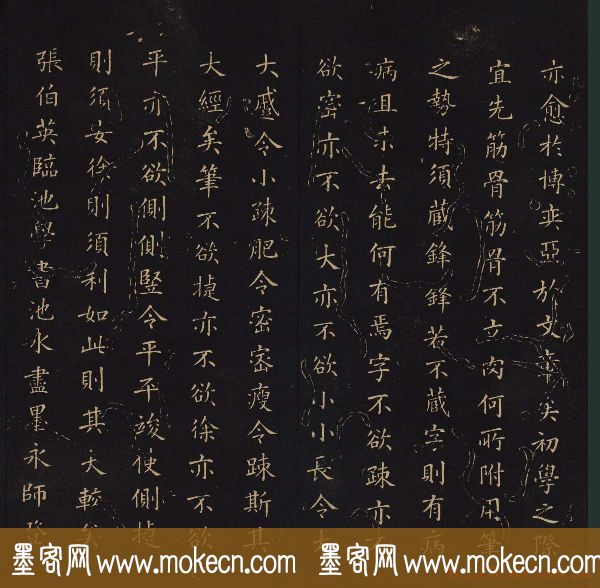 亦愈於博奕亞於文章矣初學之際
宜先筋骨筋骨不立肉何所附用筆
之勢特須蔵鋒鋒若不蔵字則有病
病且未去能何有焉字不欲踈亦不
欲密亦不欲大亦不欲小小長令大
大蹙令小踈肥令密密瘦令踈斯其
大經矣筆不欲捷亦不欲徐亦不欲
平亦不欲側側竪令平平峻使側捷
則須安徐則須利如此則其大較矣
張伯英臨池學書池水盡墨永師登
墨客网 www.mokecn.com 墨客网 www.mokecn.com